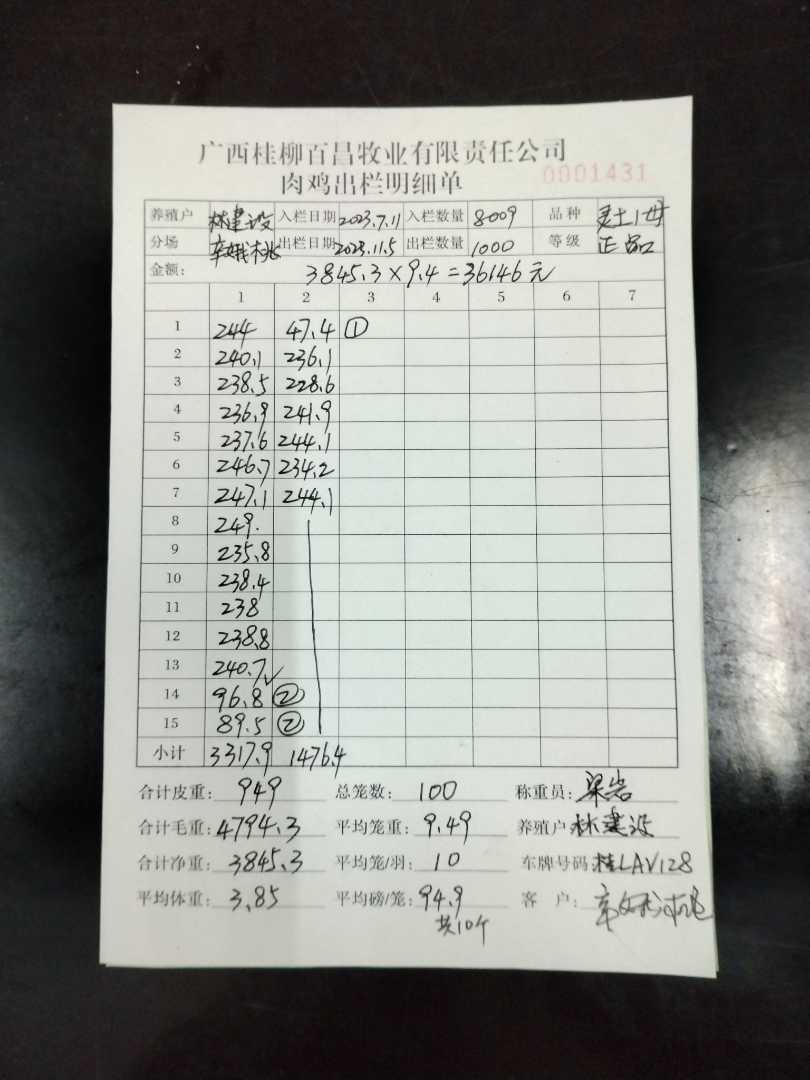 广西桂柳百昌牧业有限责任公司
肉鸡出栏明细单
0001431
养殖户 林建设 入栏日期 2023.7.11 入栏数量 8009 品种 灵土1母
分场 出栏日期 2023.11.5 出栏数量 1000 等级 正品
金额: 3845.3×9.4=36146元
1 2 3 4 5 6 7
1 244 47.4 ①
2 240.1 236.1
3 238.5 228.6
4 236.9 241.9
5 237.6 244.1
6 246.7 234.2
7 247.1 244.1
8 249.
9 235.8
10 238.4
11 238
12 238.8
13 240.7 ✓
14 96.8 ②
15 89.5 ②
小计 3317.9 1476.4
合计皮重: 949 总笼数: 100 称重员: 梁岩
合计毛重: 4794.3 平均笼重: 9.49 养殖户 林建设
合计净重: 3845.3 平均笼/羽: 10 车牌号码: 桂LAV128
平均体重: 3.85 平均磅/笼: 94.9 客户:
共10个